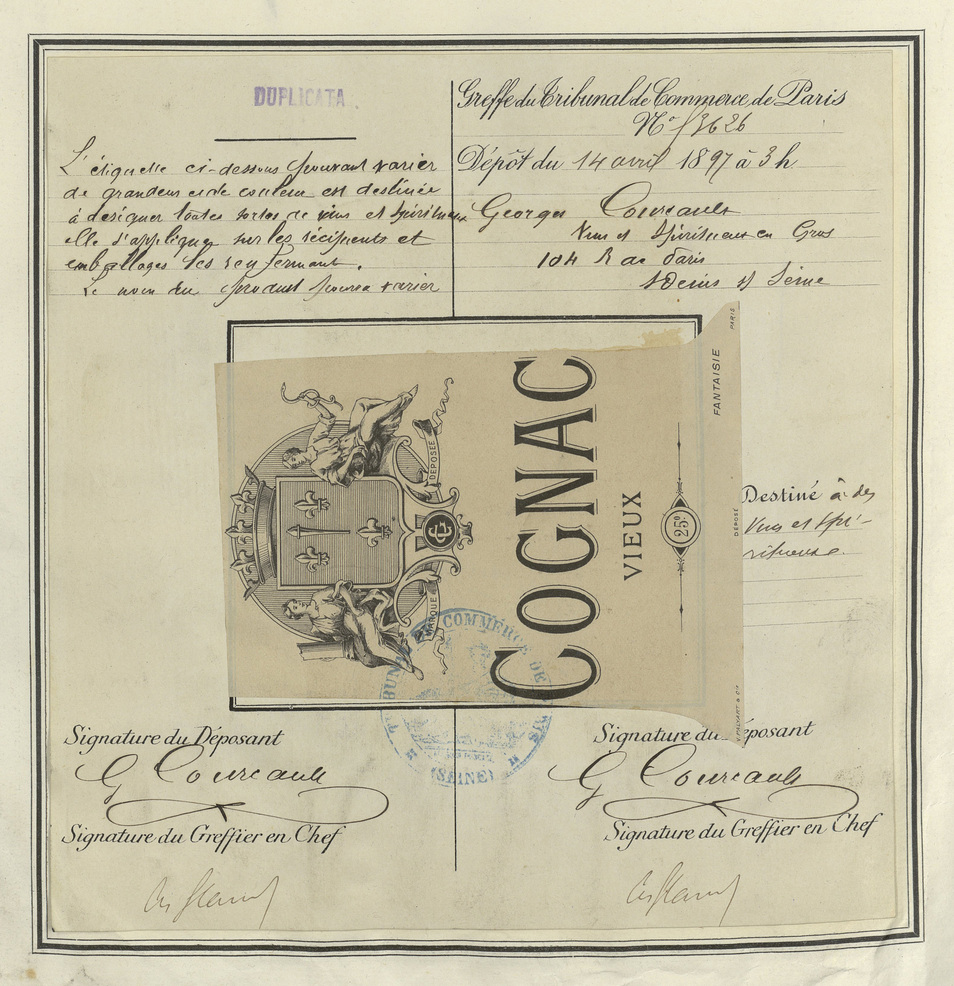 DUPLICATA
L'étiquette ci-dessous pouvant varier
de grandeur et de couleur est destinée
à designer toutes sortes de vins et spiritueux
elle s'applique sur les récipients et
emballages les renfermant.
Le nom du produit pourra varier
Greffe du Tribunal de Commerce de Paris
Dépôt du 14 avril 1897 à 3 h
Georges Courcault
Vins et Spiritueux en Gros
104 R de Paris
St Denis s/ Seine
MARQUE DÉPOSÉE
COGNAC
VIEUX
25º
FANTAISIE
DÉPOSÉ
PARIS
TRIBUNAL DE COMMERCE DE
(SEINE)
Destiné à des
Vins et Spi-
ritueux.
Signature du Déposant
G Courcault
Signature du Greffier en Chef
Signature du Déposant
G Courcault
Signature du Greffier en Chef